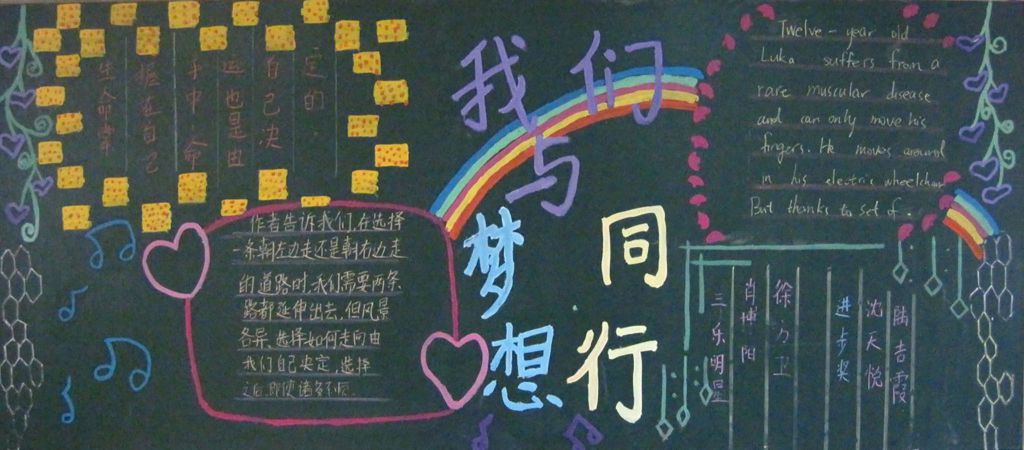 生命掌
握在自己
手中,命
运也是由
自己决
定的.
我们
与
梦想
同行
作者告诉我们,在选择
一条朝左边走还是朝右边走
的道路时,我们需要两条
路都延伸出去,但风景
各异,选择如何走向由
我们自己决定,选择
之后,即使
Twelve-year old
Luka suffers from a
rare muscular disease
and can only move his
fingers. He moves around
in his electric wheelchair
But thanks to set of.
三乐明星
肖博阳
徐方卫
进步奖
沈天悦
陆吉霞